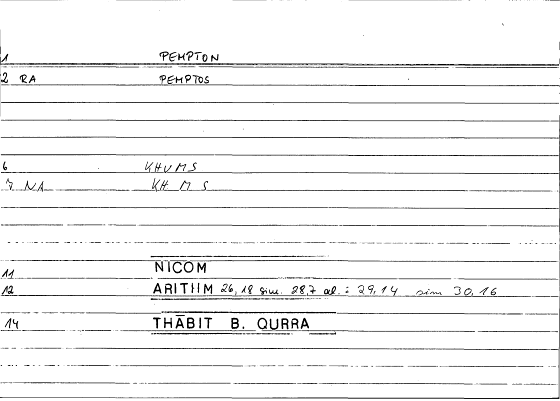 1 PEMPTON
2 RA PEMPTOS
6 KHUMS
7 NA KH M S
11 NICOM
12 ARITHM 26,18 sim. 28,7 al. : 29,14 sim 30,16
14 THĀBIT B. QURRA